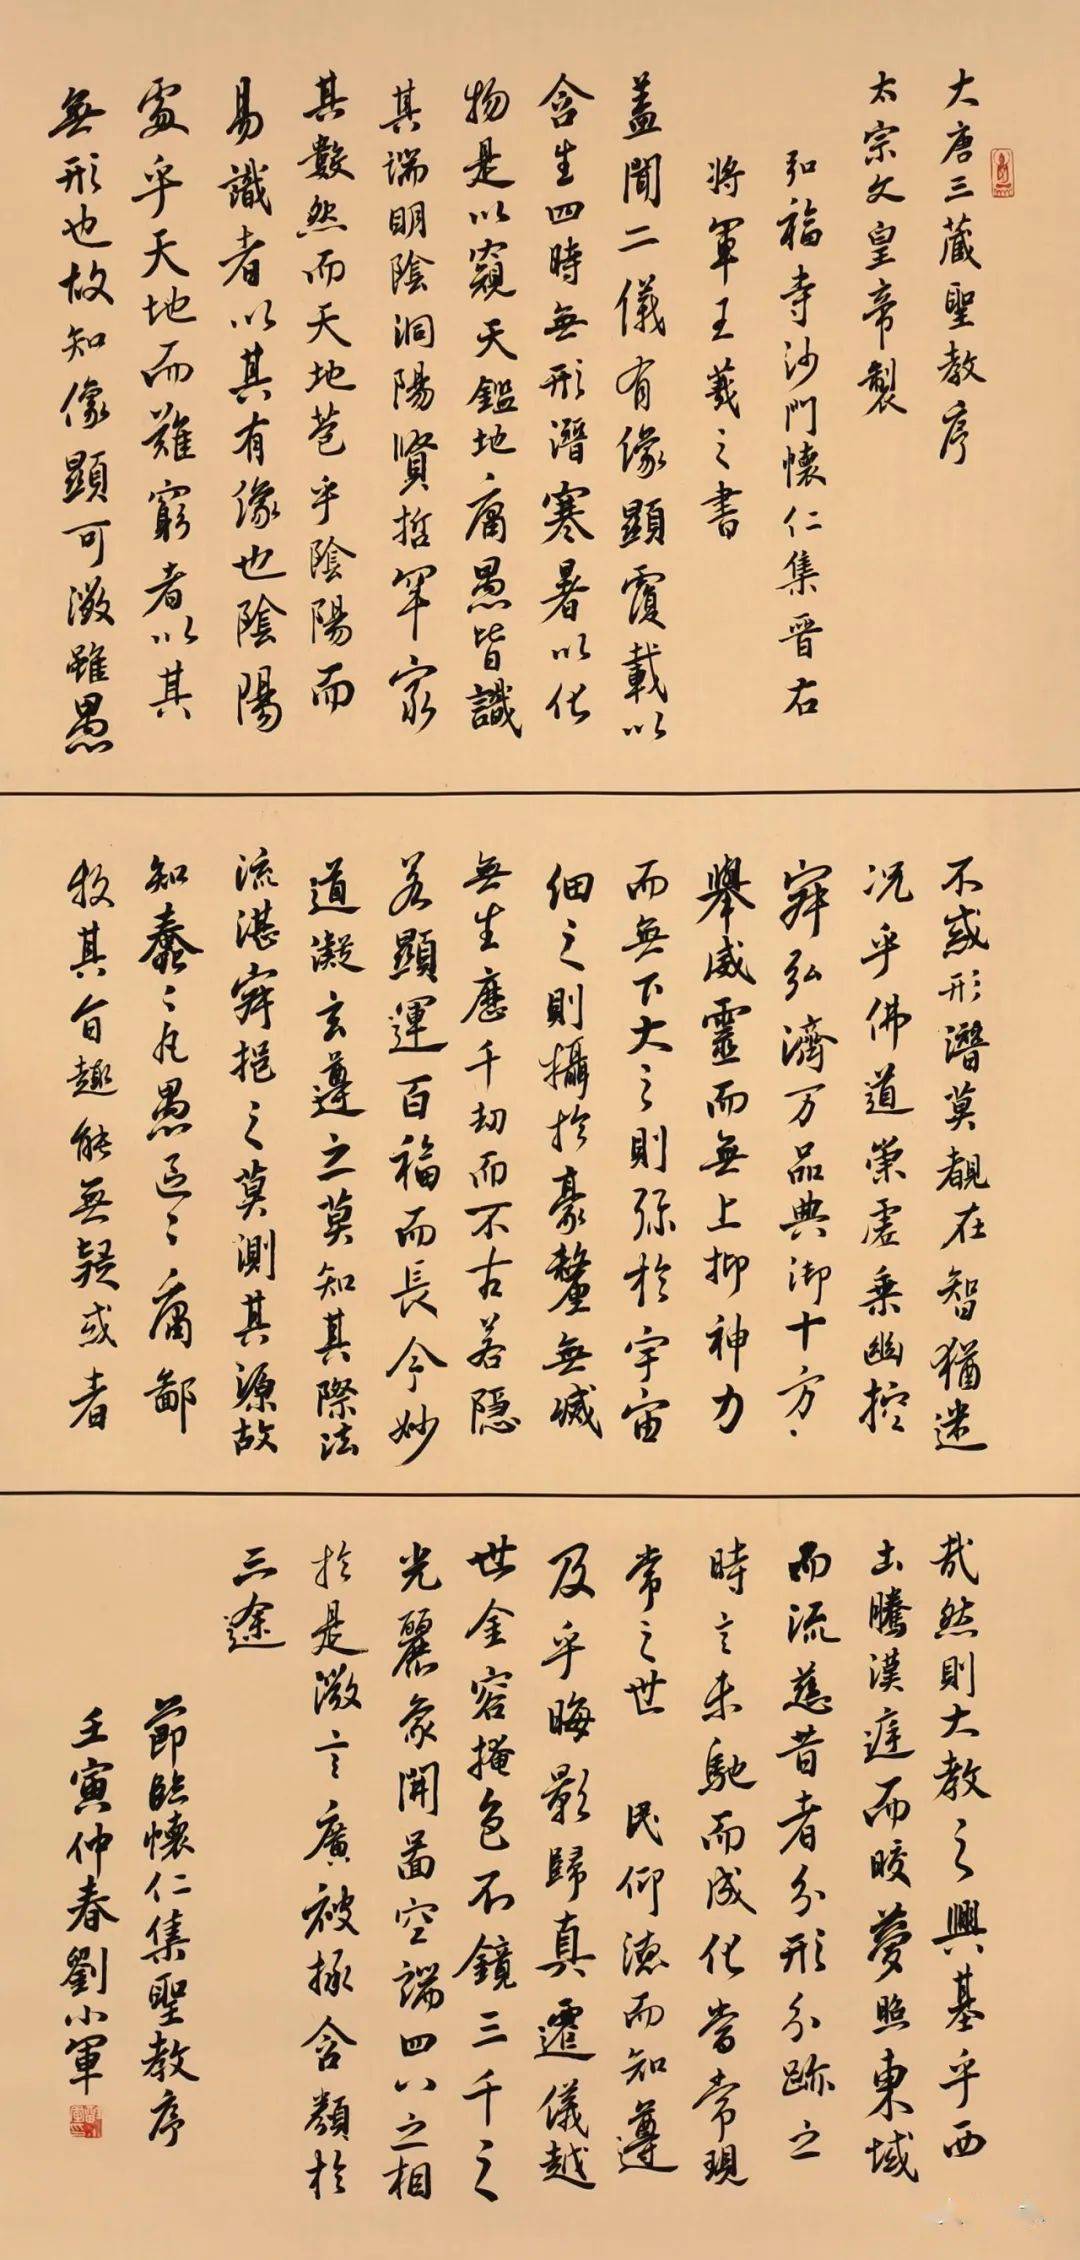 大唐三藏聖教序
太宗文皇帝製
弘福寺沙門懷仁集晉右
將軍王羲之書
蓋聞二儀有像顯覆載以
含生四時無形潛寒暑以化
物是以窺天鑑地庸愚皆識
其端明陰洞陽賢哲罕窮
其數然而天地苞乎陰陽而
易識者以其有像也陰陽
處乎天地而難窮者以其
無形也故知像顯可徵雖愚
不惑形潛莫覩在智猶迷
況乎佛道崇虛乘幽控
寂弘濟万品典御十方
舉威靈而無上抑神力
而無下大之則彌於宇宙
細之則攝於豪釐無滅
無生歷千劫而不古若隱
若顯運百福而長今妙
道凝玄遵之莫知其際法
流湛寂挹之莫測其源故
知蠢々凡愚區々庸鄙
投其旨趣能無疑或者
哉然則大教之興基乎西
土騰漢庭而皎夢照東域
而流慈昔者分形分跡之
時言未馳而成化當常現
常之世 民仰德而知遵
及乎晦影歸真遷儀越
世金容掩色不鏡三千之
光麗象開圖空端四八之相
於是微言廣被拯含類於
三途
節臨懷仁集聖教序
壬寅仲春劉小軍